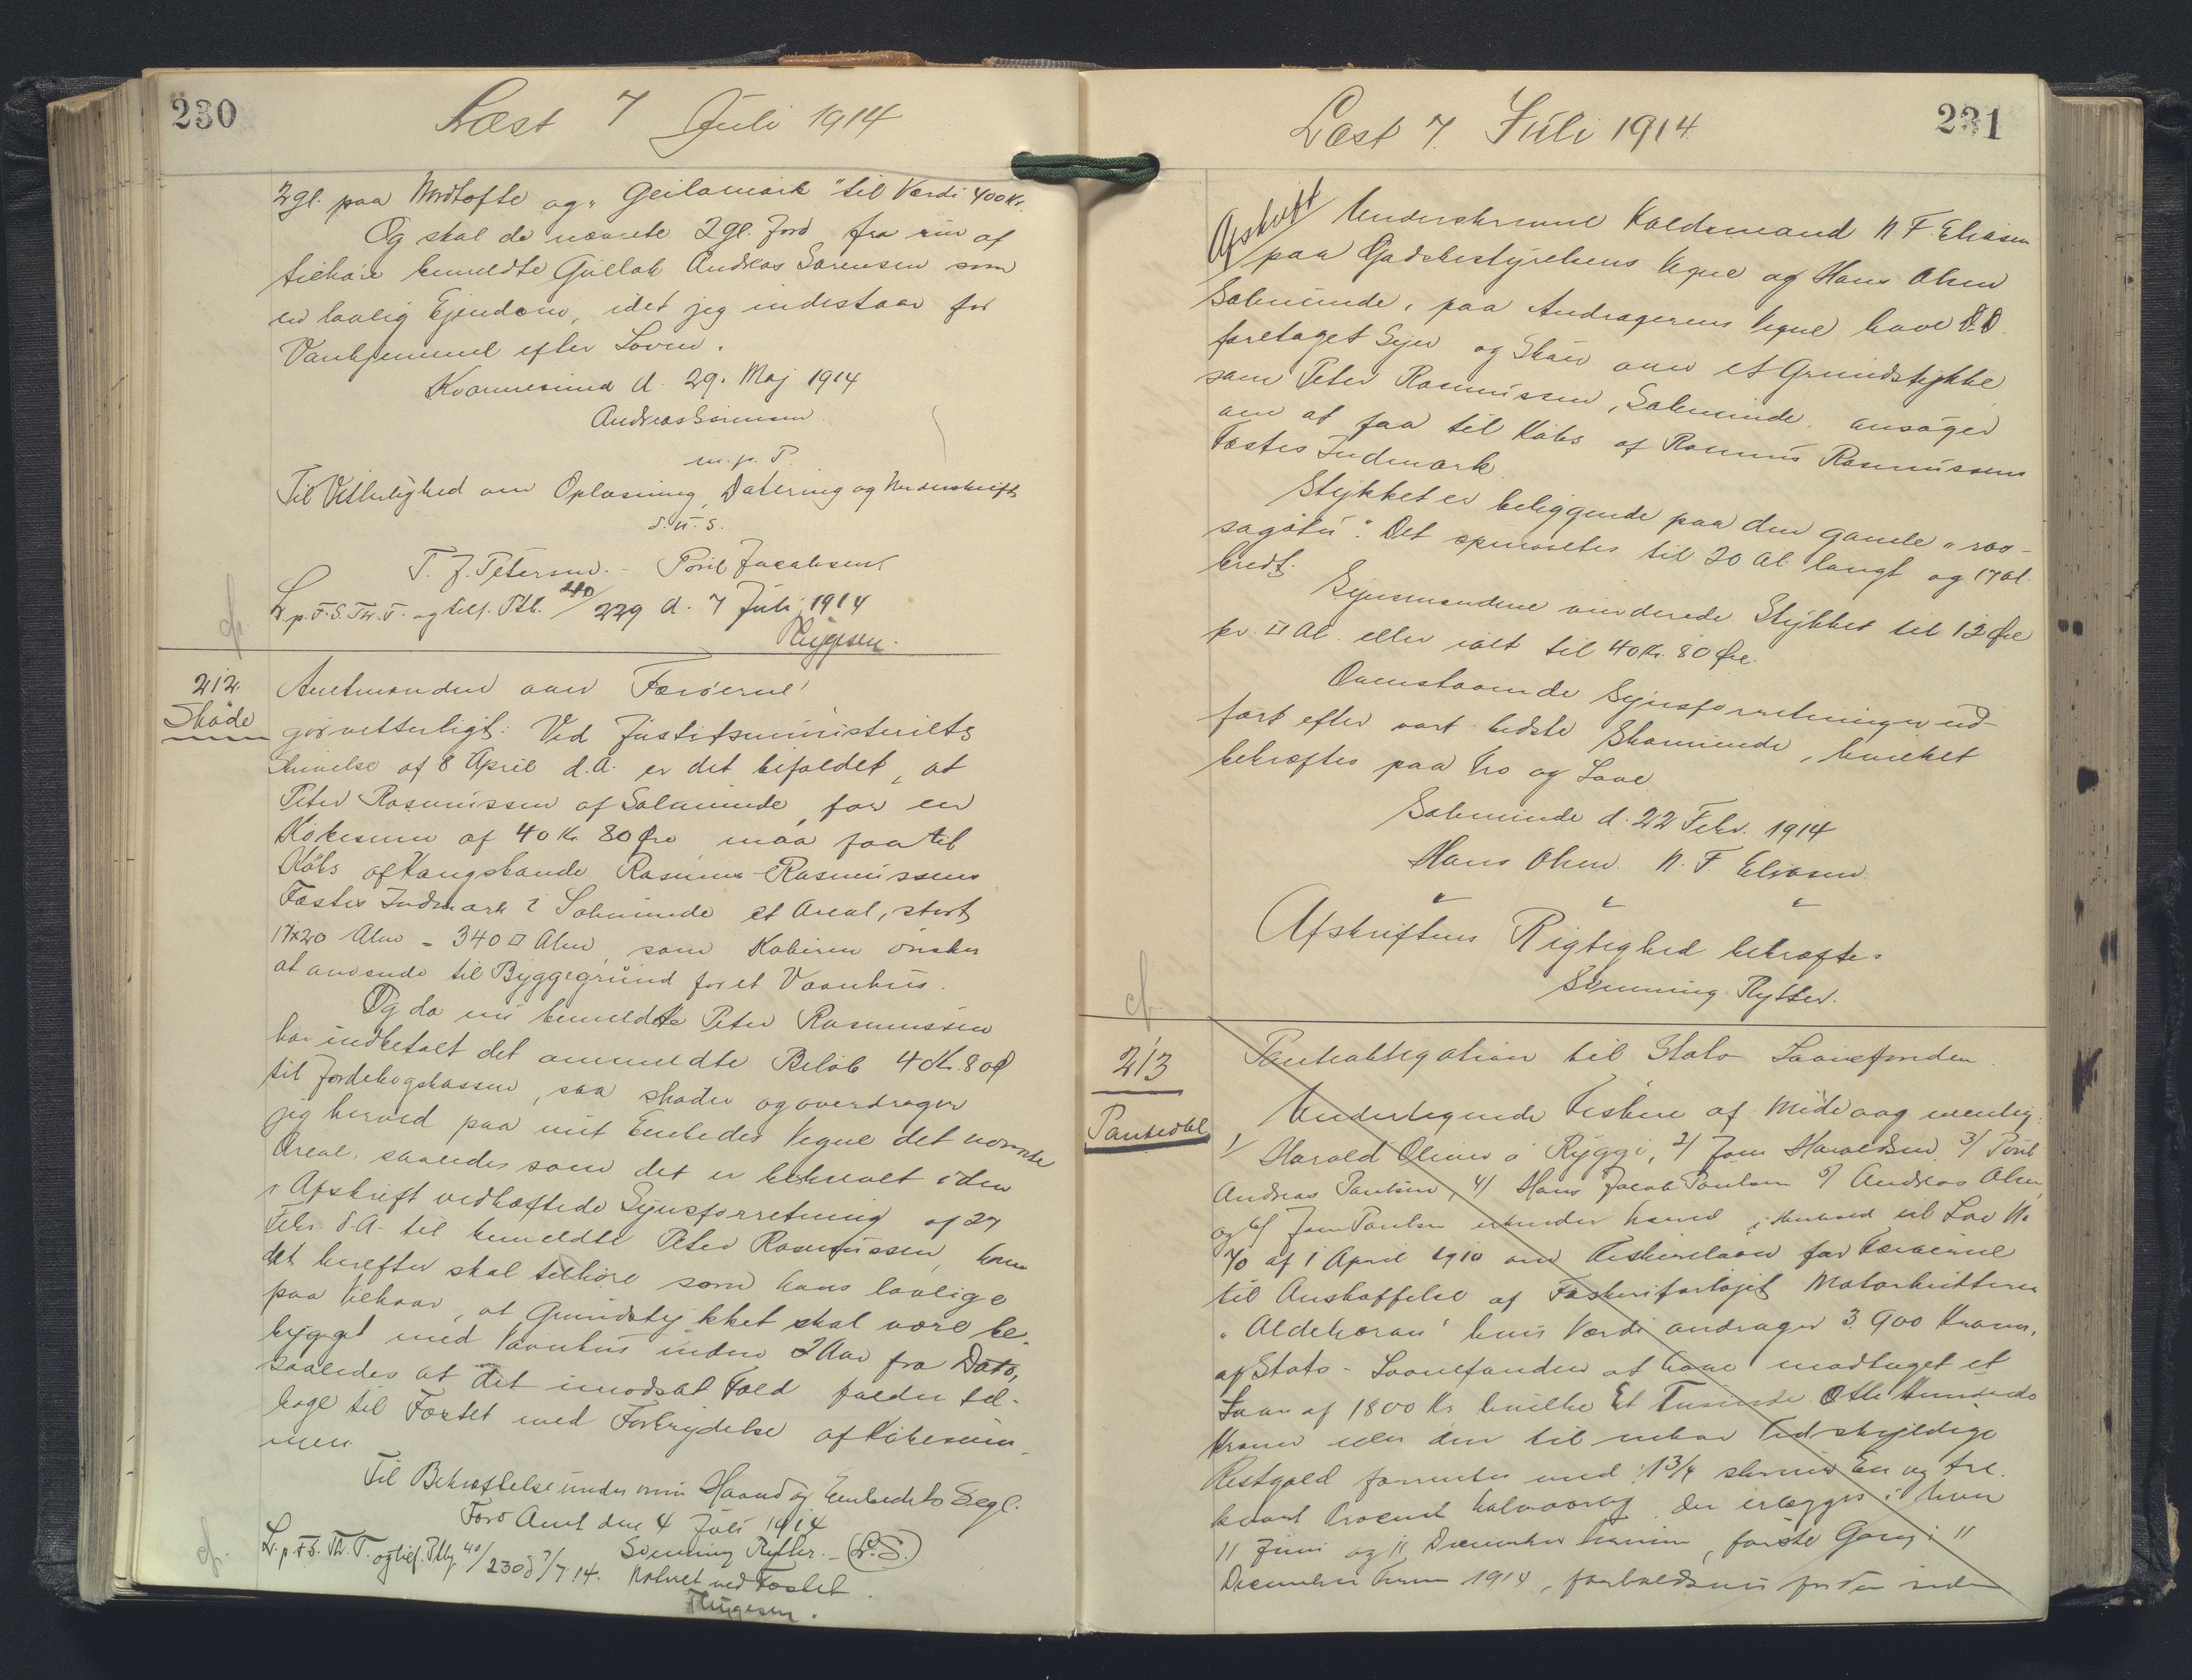 230
Læst 7 Juli 1914
2 gl. paa Nordtofte og "Geilamark" til Værdi 400 Kr.
Og skal de nævnte 2 gl. Jord fra nu af
tilhøre bemeldte Gullak Andreas Sørensen som
en lovlig Ejendom, idet jeg indestaar for
Vanhjemmel efter Loven.
Kvannesund d. 29. Maj 1914
Andreas Sørensen
m. p. P.
Til Vitterlighed om Oplæsning, Datering og Underskrift
d. u. s.
T. J. Petersen. - Poul Jacobsen
L. p. F. S. Th. T. og tilf. Ptb. 40/229 d. 7 Juli 1914
cf.
212.
Skøde
Amtmanden over Færøerne
gør vitterligt: Ved Justitsministeriets
Skrivelse af 8 April d.A. er det bifaldet, at
Peter Rasmussen af Solmunde, for en
Købesum af 40 Kr. 80 Øre maa faa til
Købs af Kongsbonde Rasmus Rasmussens
Fæstes Indmark i Solmunde et Areal, stort
17x20 Alen = 340 □ Alen, som Køberen ønsker
at anvende til Byggegrund for et Vaanhus.
Og da nu bemeldte Peter Rasmussen
har indbetalt det ommeldte Beløb 40 Kr. 80 Ø
til Jordebogskassen, saa skøder og overdrager
jeg herved paa mit Embedes Vegne det nævnte
Areal, saaledes som det er beskrevet i den
i Afskrift vedhæftede Synsforretning af 27
Febr. d.A. til bemeldte Peter Rasmussen, hvem
det herefter skal tilhøre som hans lovlige
paa Vilkaar, at Grundstykket skal være be-
bygget med Vaanhus inden 2 Aar fra Dato,
saaledes at det i modsat Fald falder til-
bage til Fæstet med Forbrydelse af Købesum-
men.
Til Bekræftelse under min Haand og Embedets Segl.
Færø Amt den 4 Juli 1914
Svenning Rytter. - (L. S.)
L. p. F. S. Th. T. og tilf. Ptbg. 40/230 d 7/7 14. Notert ved Fæstet.
cf.
231
Læst 7. Juli 1914
Afskrift
Underskrevne Valdsmand N F. Eliasen
paa Godsbestyrelsens Vegne og Hans Olsen
Solmunde, paa Andragerens Vegne have D.D.
foretaget Syn og Skøn over et Grundstykke
som Peter Rasmussen, Solmunde, ansøger
om at faa til Købs af Rasmus Rasmussens
Fæstes Indmark.
Stykket er beliggende paa den gamle "
. Det opmaaltes til 20 al. langt og 17 al.
bredt.
Synsmændene vurderede Stykket til 12 Øre
pr. □ Al. eller ialt til 40 Kr. 80 Øre.
Ovenstaaende Synsforretningen ud-
ført efter vort bedste Skønnende, hvilket
bekræftes paa Tro og Love
Solmunde d. 22 Febr. 1914
Hans Olsen. N. F. Eliasen.
Afskriftens Rigtighed bekræftes
Svenning Rytter.
cf.
213
Panteobl
Panteobligation til Stats Laanefonden.
Undertegnede Fiskere af Midvaag nemlig:
1/ Harald Olsen á Ryggi, 2/ Jens Haraldsen, 3/ Poul
Andreas Poulsen, 4/ Hans Jacob Poulsen 5/ Andreas Olsen
og 6/ Jens Poulsen erkender herved i Henhold til Lov No
70 af 1 April 1910 om Fiskerilaan for Færøerne
til Anskaffelse af Fiskerifartøjet Motorkutteren
"Aldebaran" hvis Værdi andrager 3.900 Kroner,
af Stats-Laanefonden at have modtaget et
Laan af 1800 Kr. hvilke Et Tusinde Otte Hundrede
Kroner eller den til enhver Tid skyldige
Restgæld forrentes med 1 3/4 skriver En og tre
kvart Procent halvaarlig, der erlægges i hver
11 Juni og 11 December Termin, første Gang i 11
December Termin 1914, forholdsvis for den siden